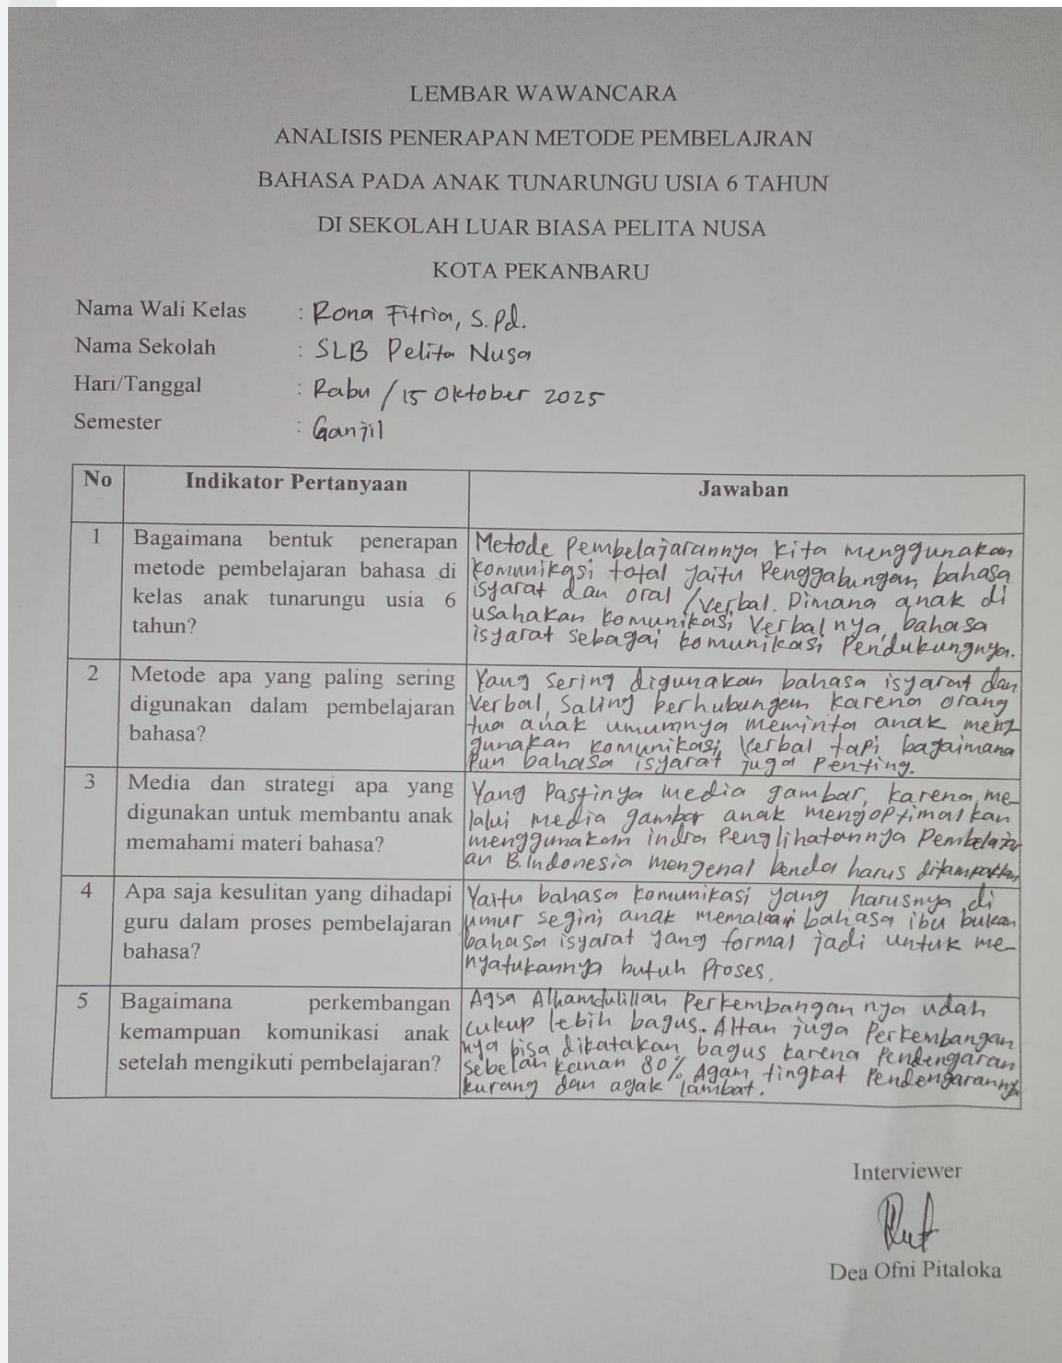 LEMBAR WAWANCARA
ANALISIS PENERAPAN METODE PEMBELAJRAN
BAHASA PADA ANAK TUNARUNGU USIA 6 TAHUN
DI SEKOLAH LUAR BIASA PELITA NUSA
KOTA PEKANBARU
Nama Wali Kelas : Rona Fitria, S.Pd.
Nama Sekolah : SLB Pelita Nusa
Hari/Tanggal : Rabu / 15 Oktober 2025
Semester : Ganjil
No Indikator Pertanyaan Jawaban
1 Bagaimana bentuk penerapan
metode pembelajaran bahasa di
kelas anak tunarungu usia 6
tahun?
Metode Pembelajarannya kita menggunakan
komunikasi total yaitu Penggabungan bahasa
isyarat dan oral / Verbal. Dimana anak di
usahakan komunikasi Verbalnya, bahasa
isyarat sebagai komunikasi Pendukungnya.
2 Metode apa yang paling sering
digunakan dalam pembelajaran
bahasa?
Yang sering digunakan bahasa isyarat dan
Verbal, Saling berhubungan karena orang
tua anak umumnya meminta anak meng
gunakan komunikasi Verbal tapi bagaimana
Pun bahasa isyarat juga Penting.
3 Media dan strategi apa yang
digunakan untuk membantu anak
memahami materi bahasa?
Yang Pastinya media gambar, karena me-
lalui media gambar anak mengoptimalkan
menggunakan indra Penglihatannya Pembelajar
an B.Indonesia mengenal benda harus ditampakkan
4 Apa saja kesulitan yang dihadapi
guru dalam proses pembelajaran
bahasa?
Yaitu bahasa komunikasi yang harusnya di
umur segini anak memakai bahasa ibu bukan
bahasa isyarat yang formal jadi untuk me-
nyatukannya butuh Proses.
5 Bagaimana perkembangan
kemampuan komunikasi anak
setelah mengikuti pembelajaran?
Aqsa Alhamdulillah Perkembangan nya udah
cukup lebih bagus. Altan juga Perkembangan
nya bisa dikatakan bagus karena Pendengaran
sebelah kanan 80% Agam tingkat Pendengarannya
kurang dan agak lambat.
Interviewer
Dea Ofni Pitaloka